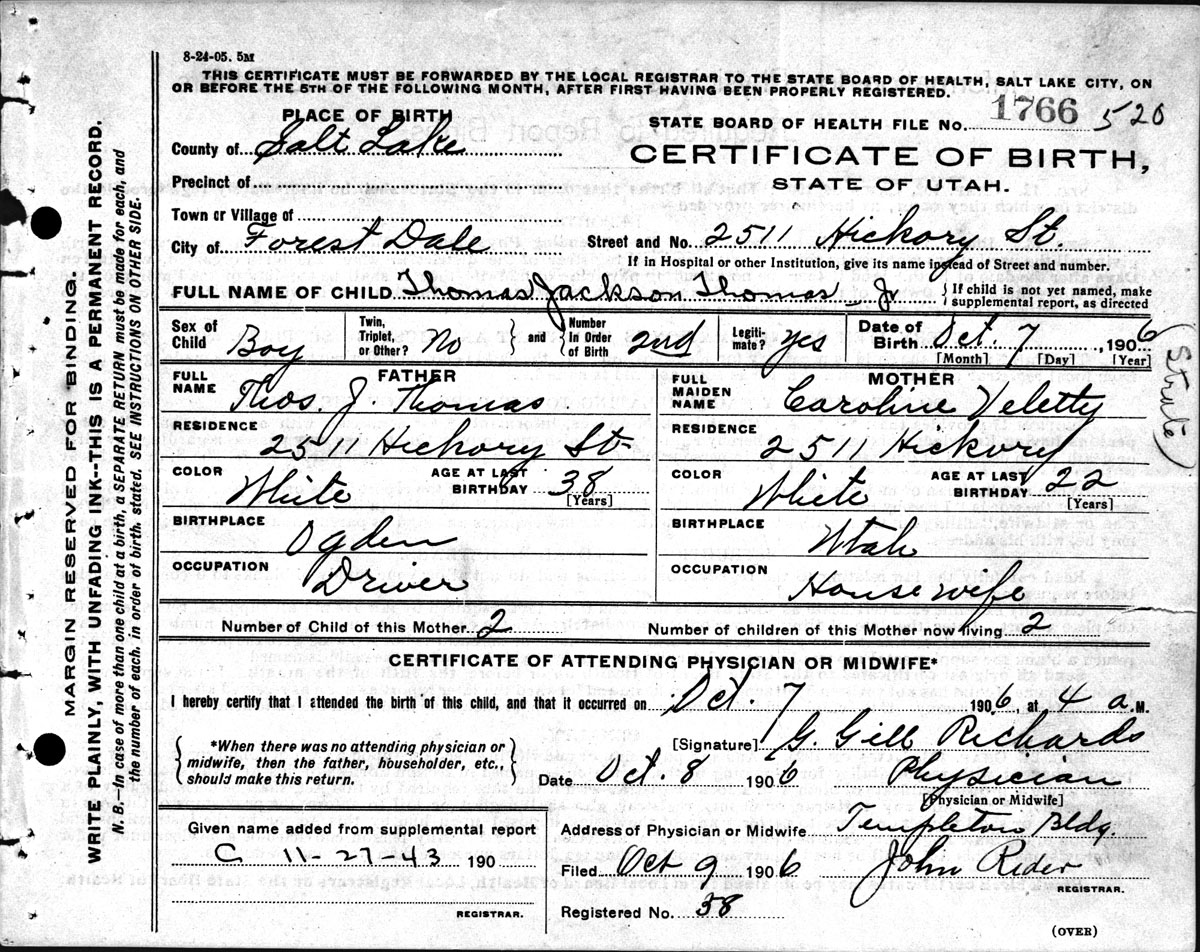 8-24-05. 5M
THIS CERTIFICATE MUST BE FORWARDED BY THE LOCAL REGISTRAR TO THE STATE BOARD OF HEALTH, SALT LAKE CITY, ON
OR BEFORE THE 5TH OF THE FOLLOWING MONTH, AFTER FIRST HAVING BEEN PROPERLY REGISTERED.
PLACE OF BIRTH
STATE BOARD OF HEALTH FILE No. 1766 520
County of Salt Lake
CERTIFICATE OF BIRTH,
STATE OF UTAH.
Precinct of
Town or Village of
City of Forest Dale Street and No. 2511 Hickory St.
If in Hospital or other Institution, give its name instead of Street and number.
FULL NAME OF CHILD Thomas Jackson Thomas Jr { If child is not yet named, make supplemental report, as directed
Sex of Child Boy Twin, Triplet, or Other? No } and { Number In Order of Birth 2nd Legiti- mate? yes Date of Birth Oct. 7, 1906
[Month] [Day] [Year]
(Strate)
FATHER MOTHER
FULL NAME Thos. J Thomas FULL MAIDEN NAME Caroline Veletty
RESIDENCE 2511 Hickory St- RESIDENCE 2511 Hickory
COLOR White AGE AT LAST BIRTHDAY 38 [Years] COLOR White AGE AT LAST BIRTHDAY 22 [Years]
BIRTHPLACE Ogden BIRTHPLACE Utah
OCCUPATION Driver OCCUPATION Housewife
Number of Child of this Mother 2 Number of children of this Mother now living 2
CERTIFICATE OF ATTENDING PHYSICIAN OR MIDWIFE*
I hereby certify that I attended the birth of this child, and that it occurred on Oct. 7 1906, at 4 a.M.
{ *When there was no attending physician or midwife, then the father, householder, etc., should make this return. }
[Signature] G. Gill Richards
Date Oct. 8 1906 Physician
[Physician or Midwife]
Given name added from supplemental report
C 11-27-43 190
REGISTRAR.
Address of Physician or Midwife Templeton Bldg.
Filed Oct 9 1906 John Rider
REGISTRAR.
Registered No. 38
(OVER)
MARGIN RESERVED FOR BINDING.
WRITE PLAINLY, WITH UNFADING INK--THIS IS A PERMANENT RECORD.
N. B.—In case of more than one child at a birth, a SEPARATE RETURN must be made for each, and
the number of each, in order of birth, stated. SEE INSTRUCTIONS ON OTHER SIDE.